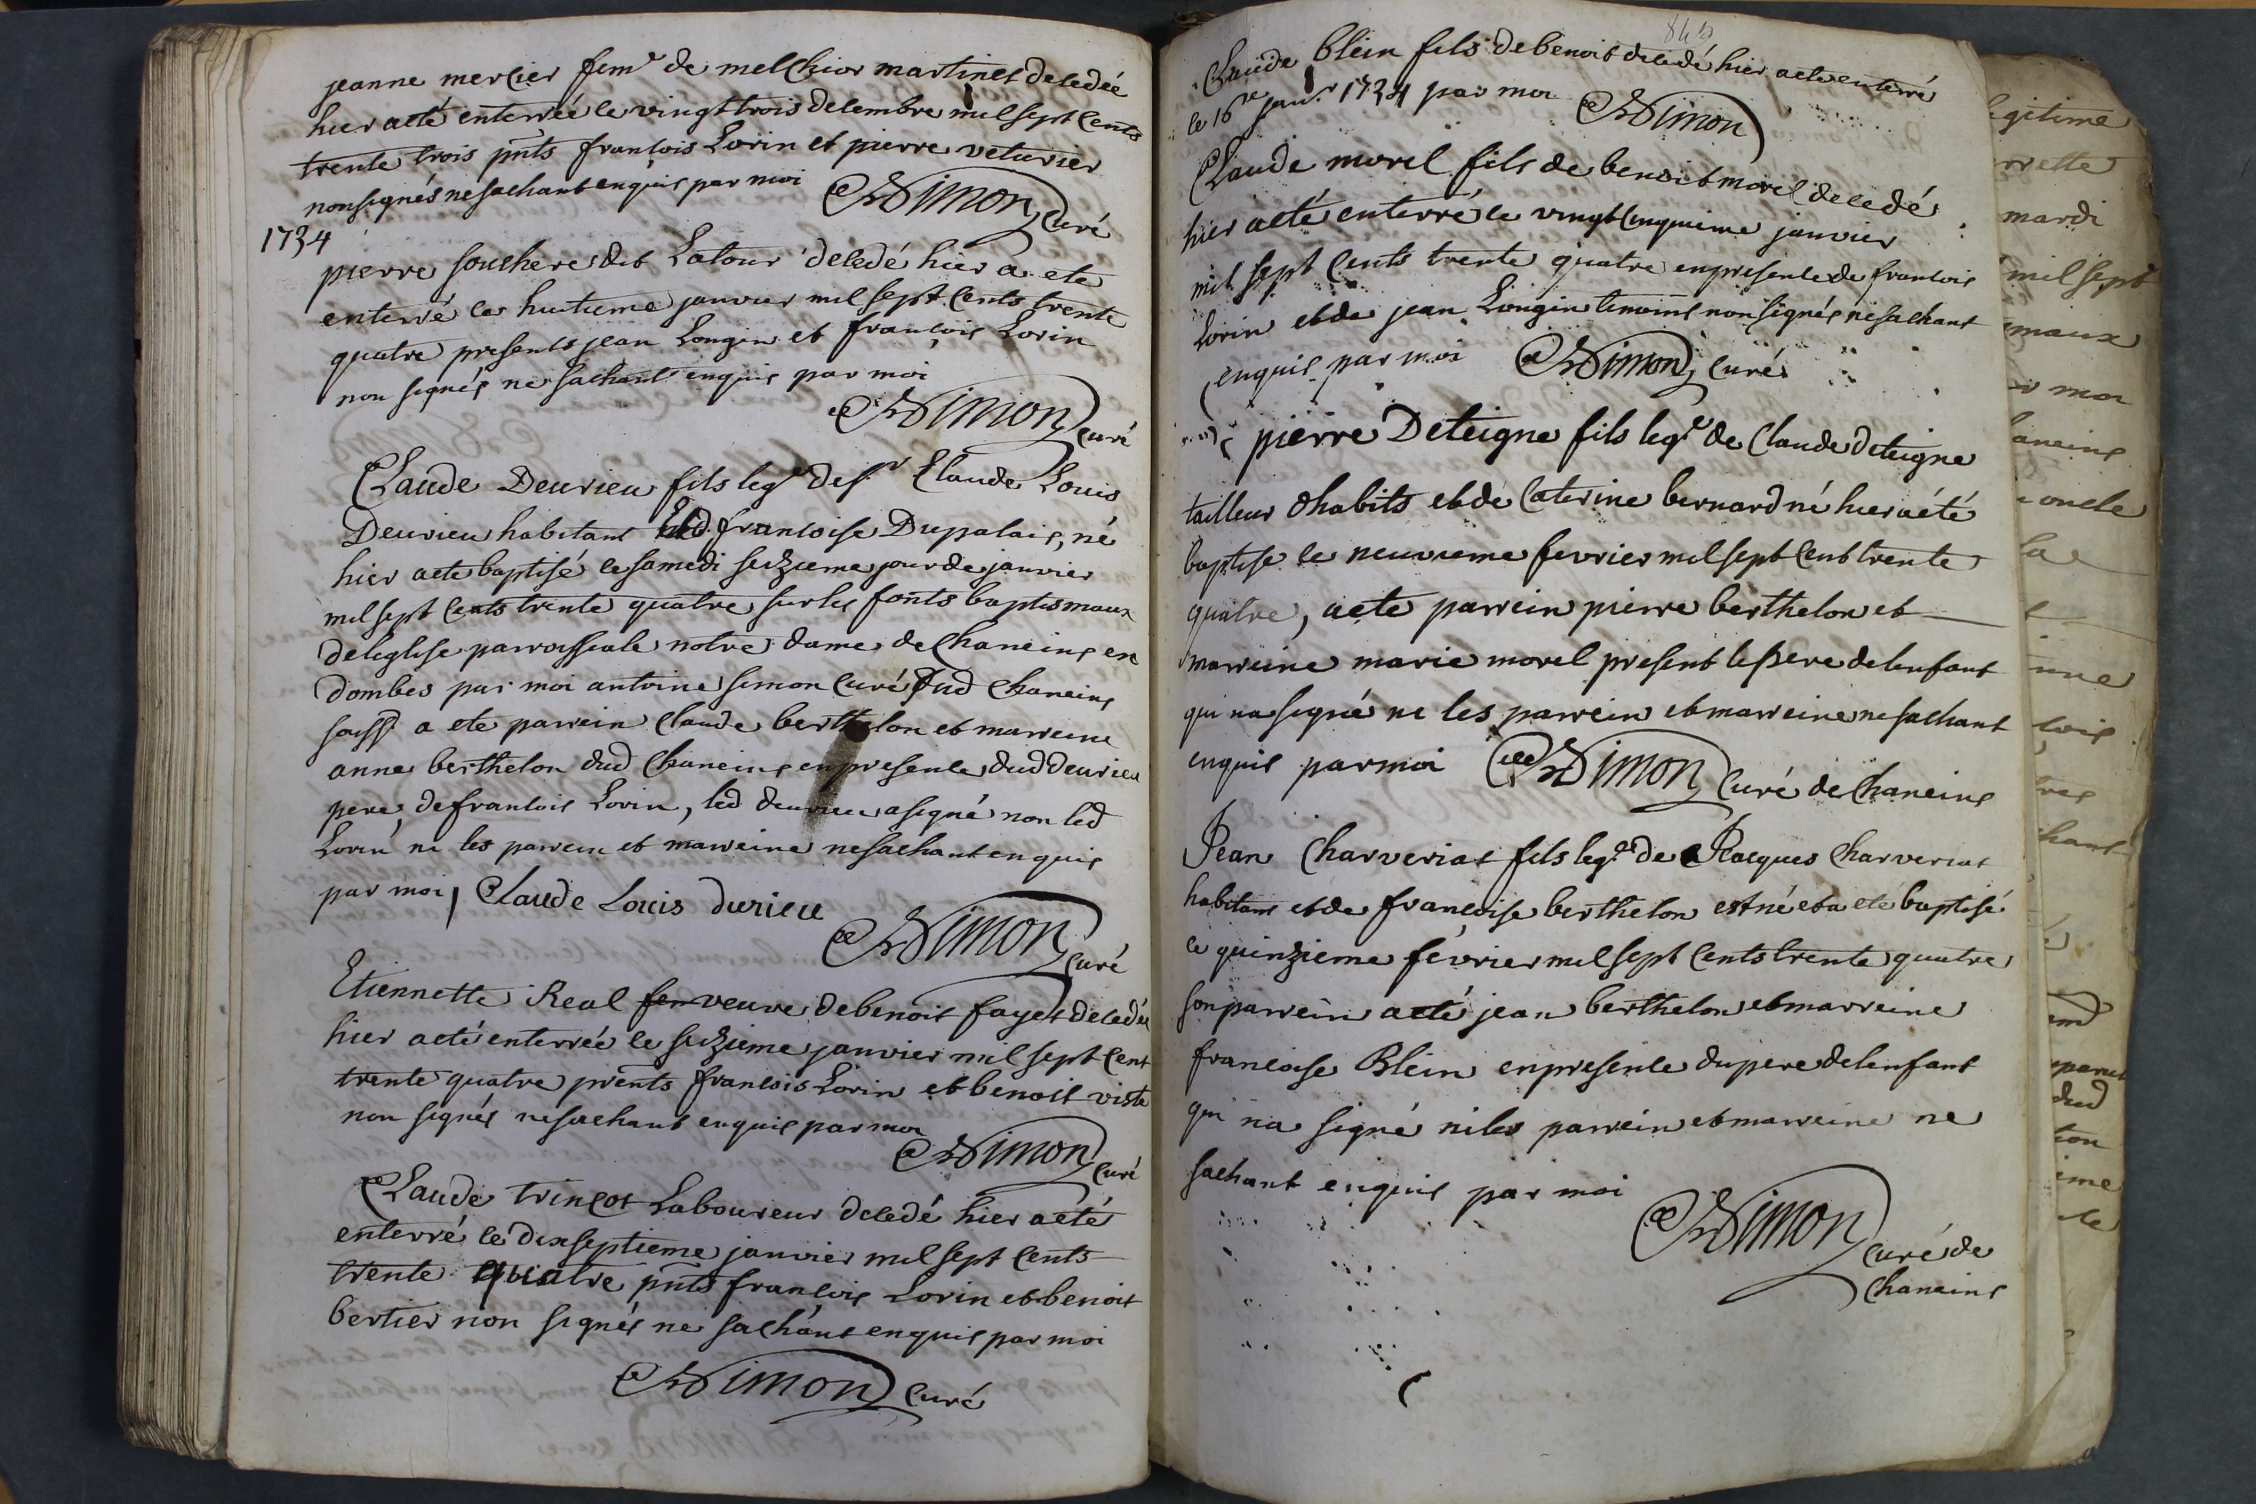 jeanne mercier feme de melchior martinet decedée
hier a eté enterrée le vingt trois decembre mil sept cents
trente trois pnts francois Lorin et pierre veturier
non signés ne sachant enquis par moi ASimon curé
1734
pierre souchere dit Latour decedé hier a eté
enterré le huitieme janvier mil sept cents trente
quatre presents jean Longin et francois Lorin
non signés ne sachant enquis par moi
ASimon curé
Claude Deurieu fils leg de sr Claude Louis
Deurieu habitant et d. francoise Dupalais, né
hier a ete baptisé le samedi seizieme jour de janvier
mil sept cents trente quatre sur les fonts baptismaux
de leglise parroissiale notre dame de Chaneins en
dombes par moi antoine simon curé dud Chaneins
soussé a ete parrein Claude berthelon et marreine
anne berthelon dud Chaneins en presence dud deurieu
pere, de francois Lorin, led deurieu a signé non led
Lorin ni les parrein et marreine ne sachant enquis
par moi, Claude Louis durieu
ASimon curé
Etiennette Real fem veuve de benoit fayet decedée
hier a eté enterrée le seizieme janvier mil sept cent
trente quatre presents francois Lorin et benoit viste
non signés ne sachant enquis par moi
ASimon curé
Claude trincot Laboureur decedé hier a eté
enterré le dixseptieme janvier mil sept cents
trente quatre pnts francois Lorin et benoit
bertier non signés ne sachant enquis par moi
ASimon curé
Claude blein fils de benoit decedé hier a ete enterré
le 16e janr 1734 par moi ASimon
Claude morel fils de benoit morel decedé
hier a eté enterré le vingt cinquieme janvier
mil sept cents trente quatre en presence de francois
Lorin et de jean Longin temoins non signés ne sachant
enquis par moi ASimon curé
pierre Deteigne fils lege de Claude deteigne
tailleur dhabits et de Caterine bernard né hier a eté
baptise le neuvieme fevrier mil sept cent trente
quatre, a ete parrein pierre berthelon et
marreine marie morel present le pere de lenfant
qui na signé ni les parrein et marreine ne sachant
enquis par moi ASimon curé de Chaneins
Jean Charveriat fils lege de Jacques Charveriat
habitant et de francoise berthelon est né et a eté baptisé
le quinzieme fevrier mil sept cents trente quatre
son parrein a eté jean berthelon et marreine
francoise Blein en presence du pere de lenfant
qui na signé ni les parrein et marreine ne
sachant enquis par moi
ASimon curé de
Chaneins
egitime
mardi
mil sept
maux
moi
aneins
oncle
la
cois
chant
dud